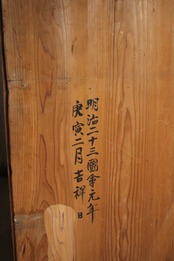 明治二十三國會元年
庚寅二月吉祥日